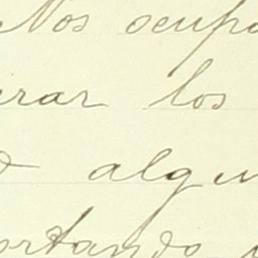 Nos ocupa
rar los
o algun
portando